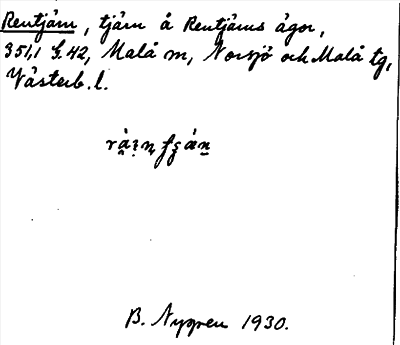 Rentjärn, tjärn å Rentjärns ägor,
351,1 G.42, Malå m, Norsjö och Malå tg,
Västerb. l.
B. Nygren 1930.